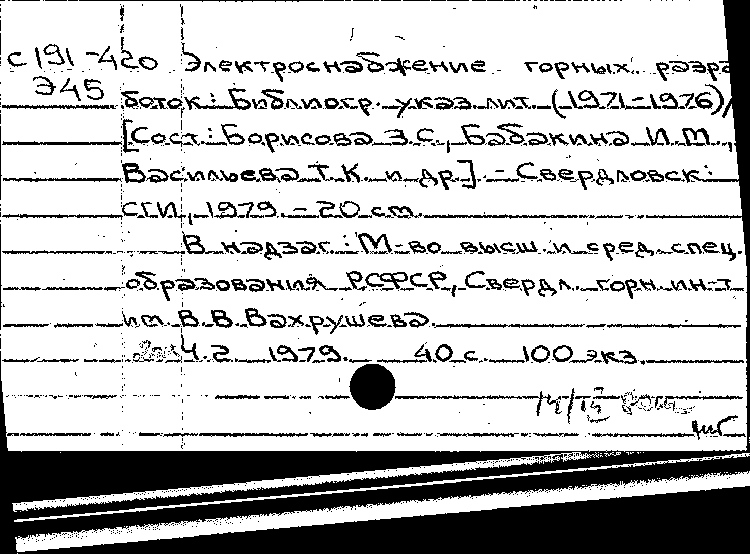 С191-420 Электроснабжение горных разра
Э45 боток: Библиогр. указ. лит. (1971-1976)/
[Сост.: Борисова З.С., Бабакина И.М.,
Васильева Т.К. и др.] - Свердловск:
СГИ, 1979. - 20 см.
В надзаг.: М-во высш. и сред. спец.
образования РСФСР, Свердл. горн. ин-т
им. В.В. Вахрушева.
Ч.2 1979. 40 с. 100 экз.